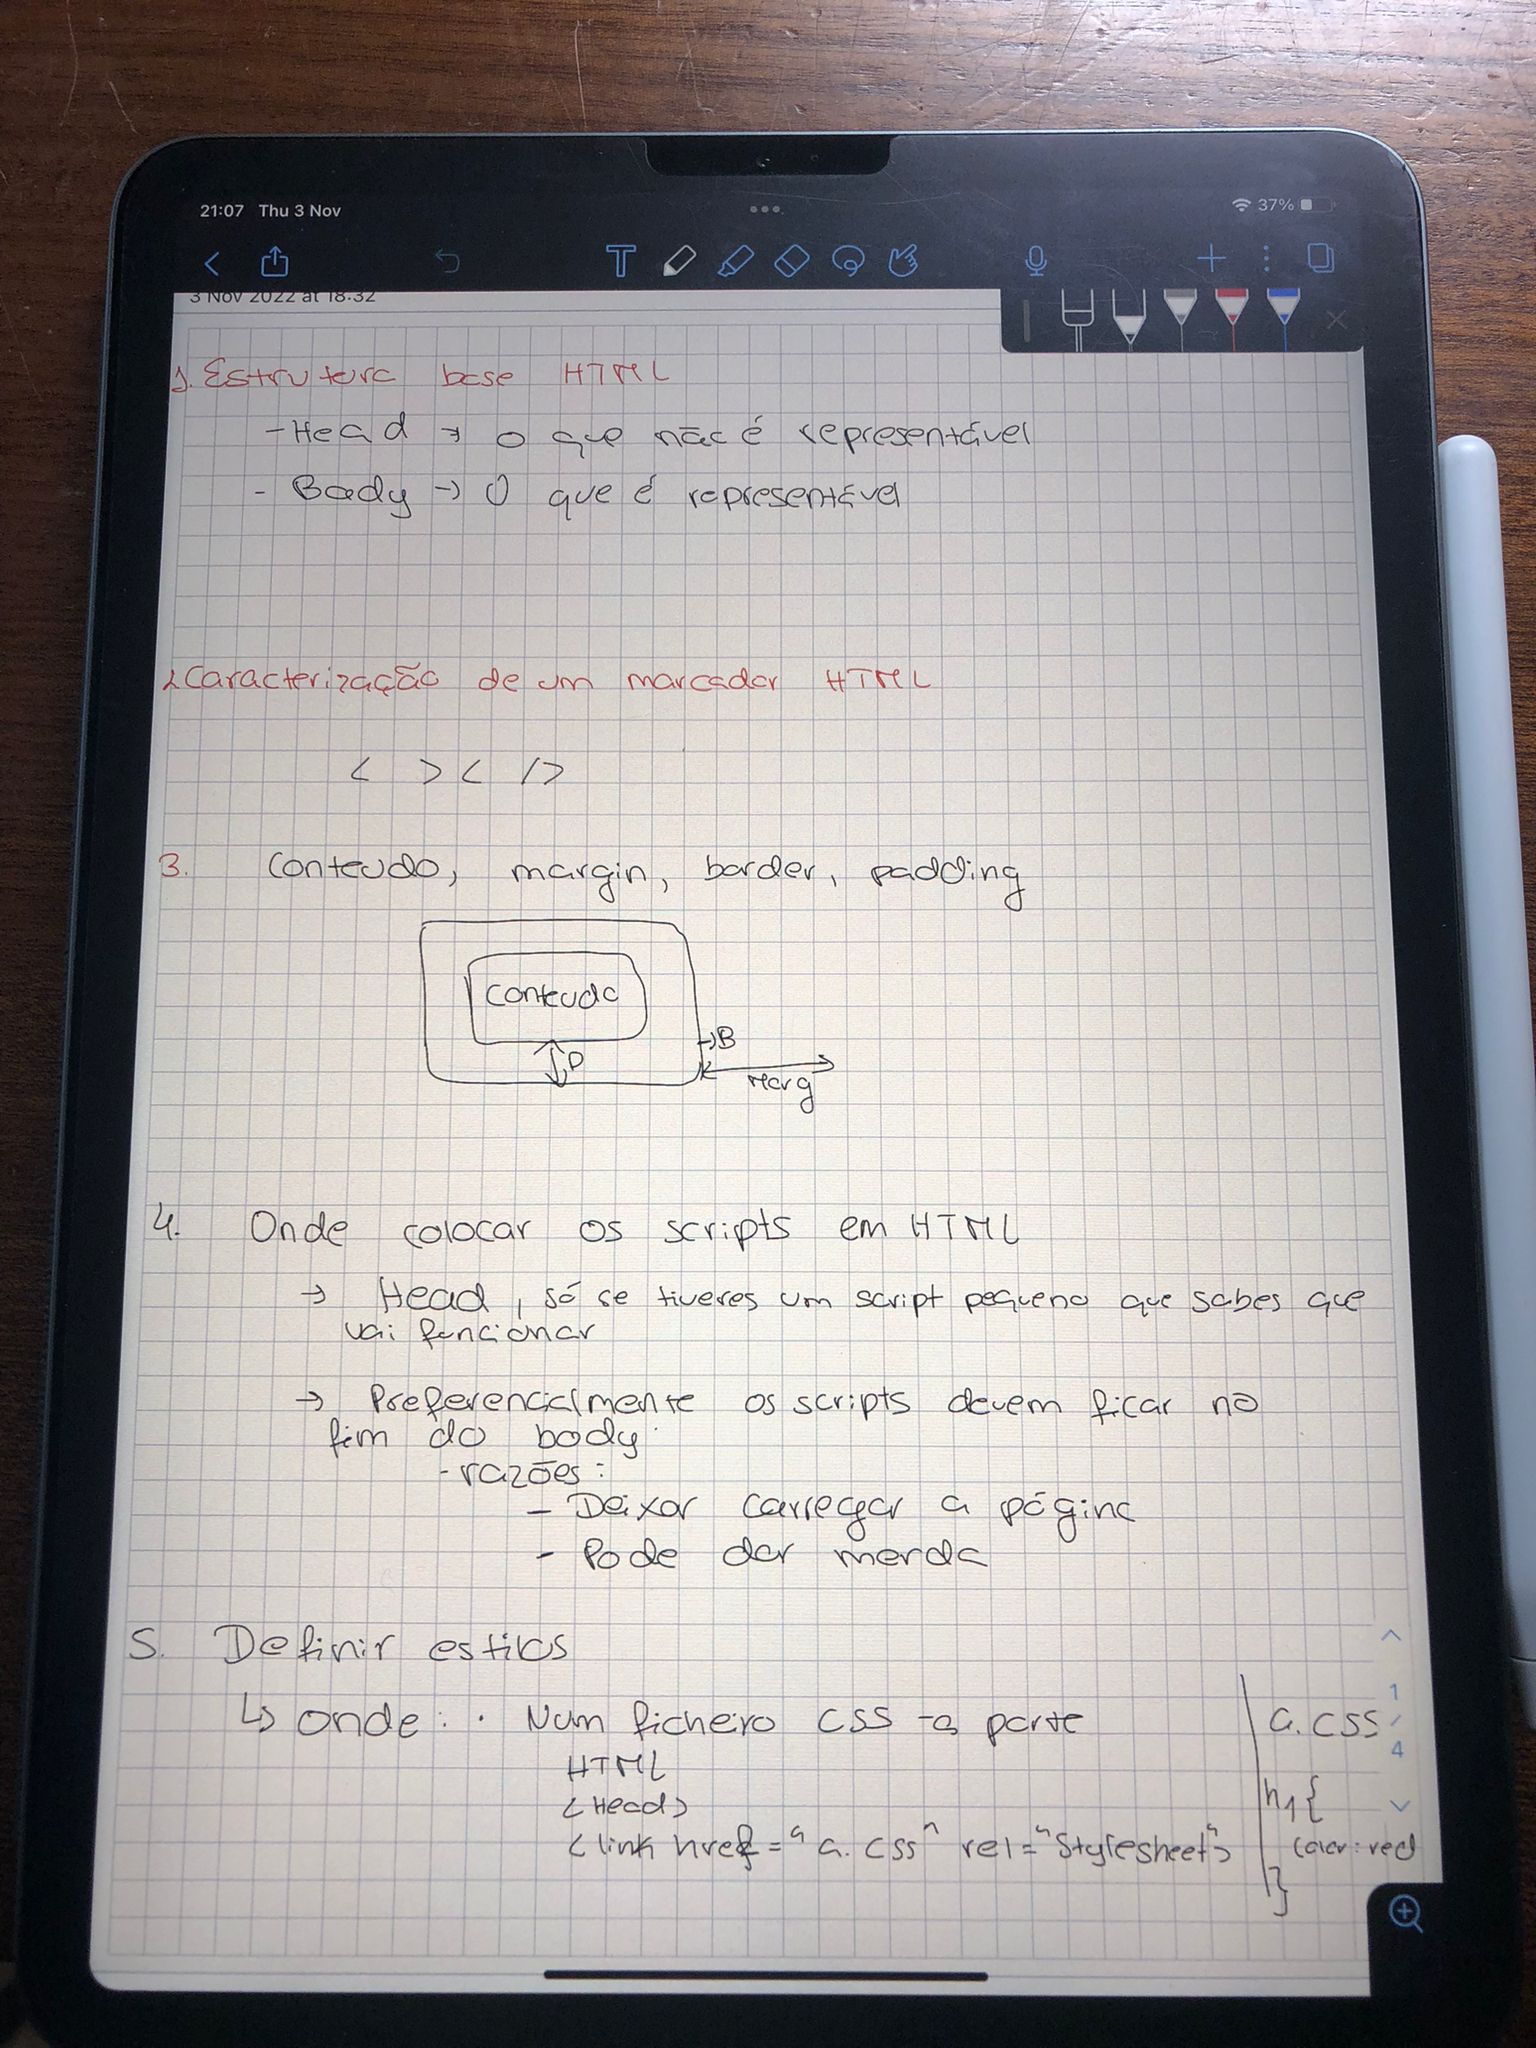 21:07 Thu 3 Nov
37%
3 Nov 2022 at 18:32
1. Estrutura base HTML
- Head → o que não é representável
- Body → O que é representável
2 Caracterização de um marcador HTML
< > < />
3. Conteudo, margin, border, padding
Conteudo
→B
P
Marg
4. Onde colocar os scripts em HTML
→ Head, só se tiveres um script pequeno que sabes que
vai funcionar
→ Preferencialmente os scripts devem ficar no
fim do body
- razões:
- Deixar carregar a página
- Pode dar merda
5. Definir estilos
↳ onde: · Num ficheiro CSS à parte
HTML
<Head>
<link href="a.css" rel="Stylesheet">
a.css
h1{
color: red
}
1
/
4